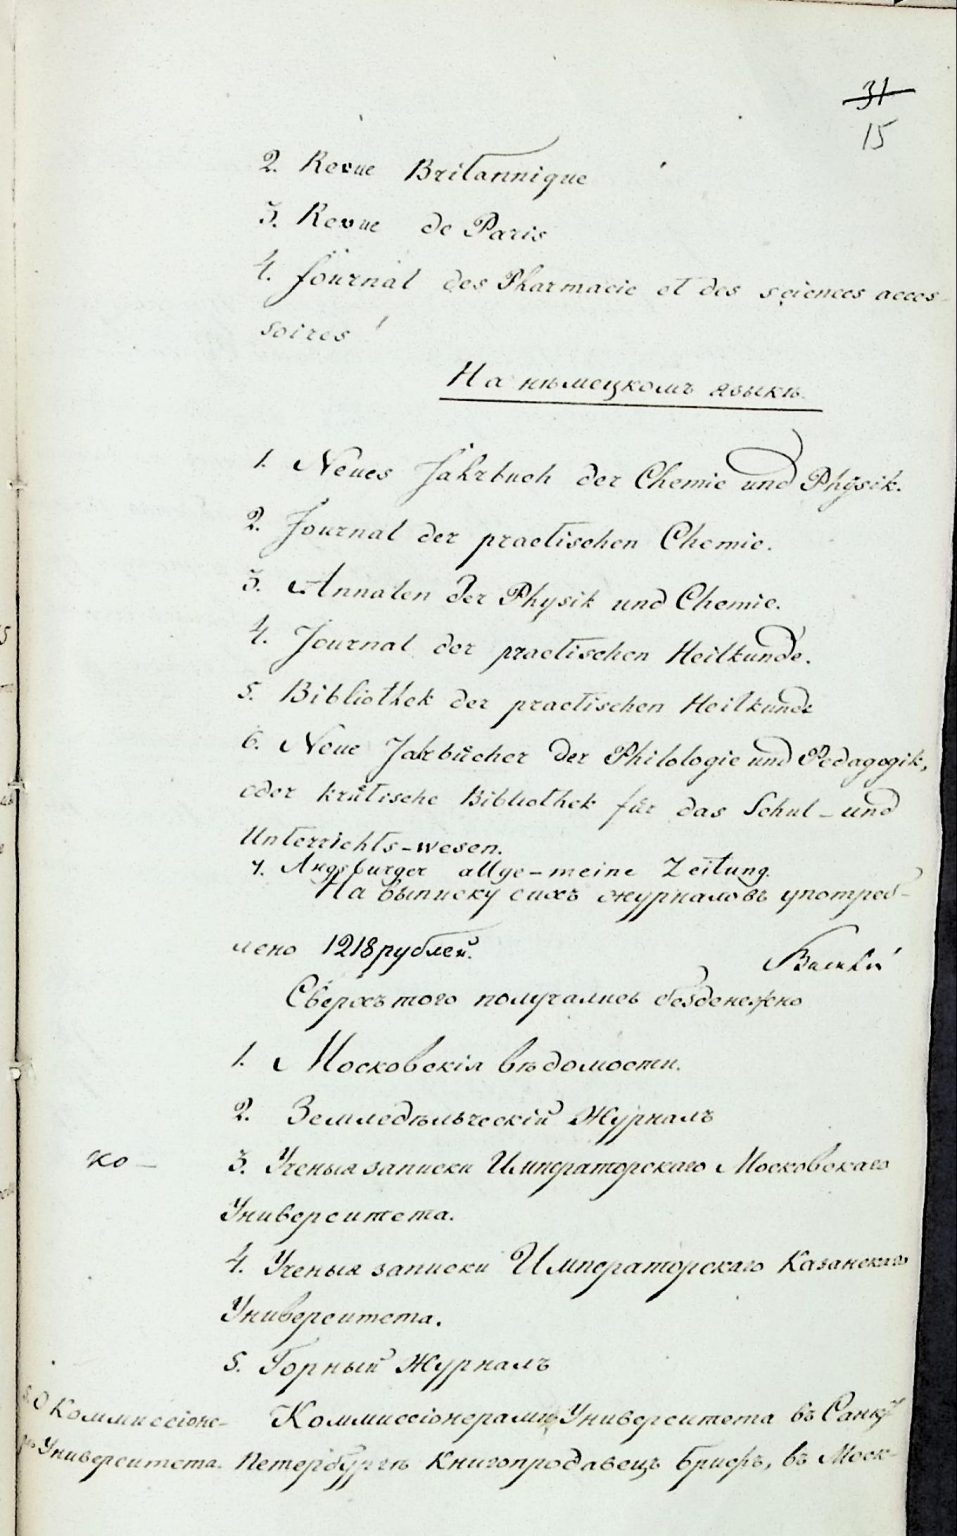 31
15
2. Revue Britannique
3. Revue de Paris
4. Journal des Pharmacie et des sciences acces-
soires
На нѣмецкомъ языкѣ.
1. Neues Jahrbuch der Chemie und Physik.
2. Journal der practischen Chemie.
3. Annalen der Physik und Chemie.
4. Journal der practischen Heilkunde.
5. Bibliothek der practischen Heilkunde
6. Neue Jahrbücher der Philologie und Pedagogik,
oder kritische Bibliothek für das Schul-und
Unterrichts-wesen.
7. Augsburger allge-meine Zeitung.
На выписку сихъ журналовъ употреб-
лено 1218 рублей.
Сверхъ того получались безденежно
1. Московскія вѣдомости.
2. Земледѣльческій Журналъ
ко-
3. Ученыя записки Императорскаго Московскаго
Университета.
4. Ученыя записки Императорскаго Казанскаго
Университета.
5. Горный Журналъ
О Коммиссіоне-
Коммиссіонерами Университета въ Санкт
Университета.
Петербургѣ Книгопродавецъ Брифъ, въ Моск-